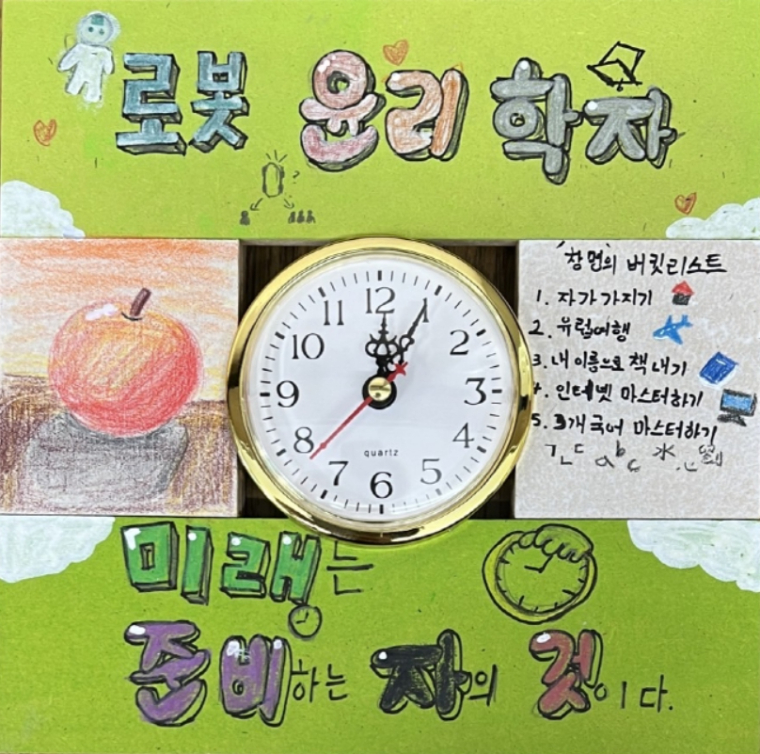 로봇 윤리 학자
?
12
11
10
2
9
3
8
4
7
5
6
quartz
'창면'의 버킷리스트
1. 자가 가지기
2. 유럽여행
3. 내 이름으로 책 내기
4. 인터넷 마스터하기
5. 3개국어 마스터하기
ㄱㄴㄷ abc 水
미래는
준비하는 자의 것이다.